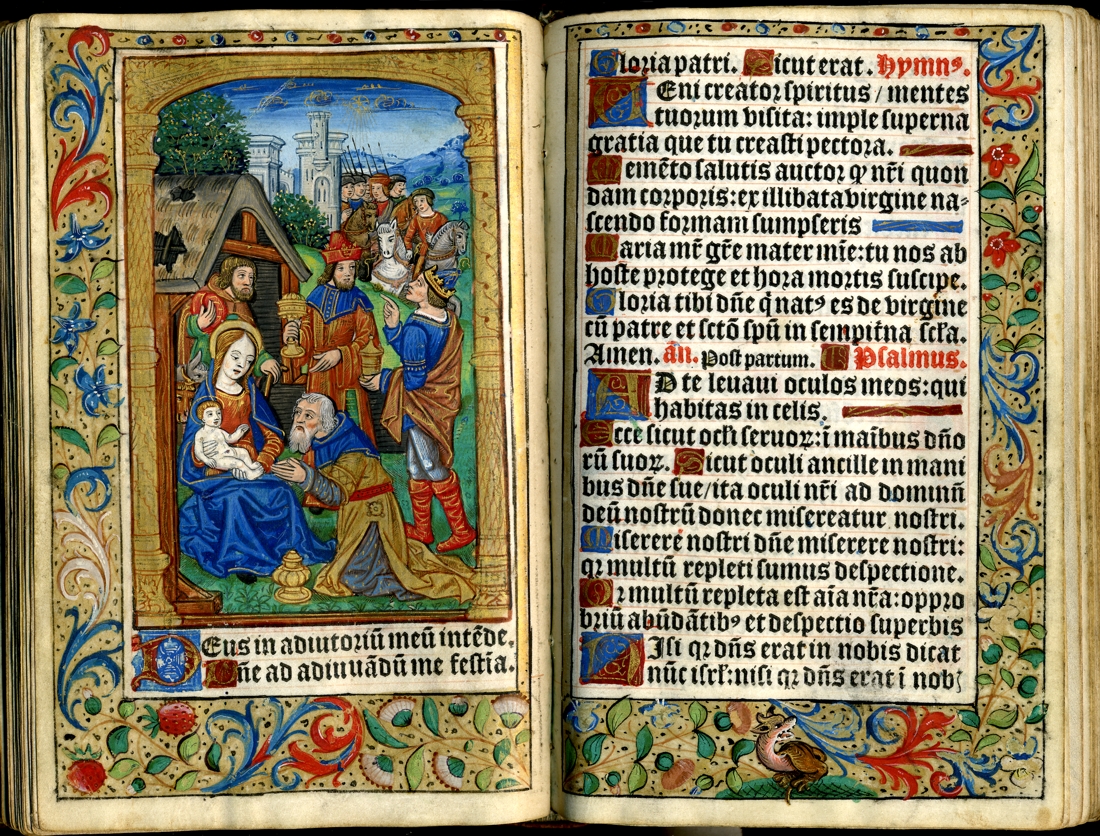 DEus in adiutoriū meū intēde.
Dñe ad adiuuādū me festīa.
Gloria patri. Sicut erat. Hymnꝰ.
VEni creator spiritus / mentes
tuorum visita: imple superna
gratia que tu creasti pectora.
Memēto salutis auctor ꝙ nr̄i quon
dam corporis: ex illibata virgine na⸗
scendo formam sumpseris
Maria mr̄ gr̄e mater mīe: tu nos ab
hoste protege et hora mortis suscipe.
Gloria tibi dñe q̇ natꝰ es de virgine
cū patre et sctō spū in sempit̄na sc̄la.
Amen. añ. Post partum. Psalmus.
AD te leuaui oculos meos: qui
habitas in celis.
Ecce sicut oc̄li seruoꝝ: ī maībus dño
rū suoꝝ. Sicut oculi ancille in mani
bus dñe sue / ita oculi nr̄i ad dominū
deū nostrū donec misereatur nostri.
Miserere nostri dñe miserere nostri:
qꝛ multū repleti sumus despectione.
Qꝛ multū repleta est aīa nr̄a: oppro
briū abūdātibꝰ et despectio superbis
NIsi qꝛ dñs erat in nobis dicat
nūc isrl̄: nisi qꝛ dñs erat ī nobꝫ